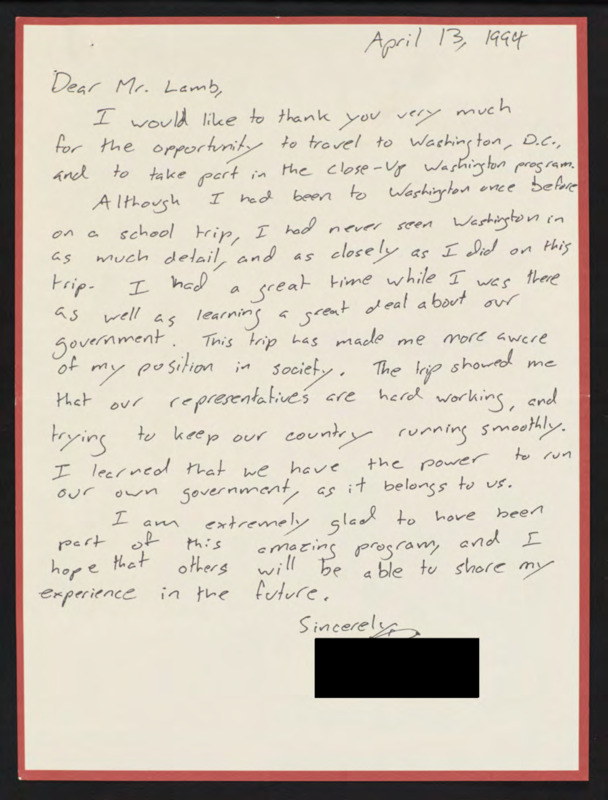 April 13, 1994
Dear Mr. Lamb,
I would like to thank you very much
for the opportunity to travel to Washington, D.C.,
and to take part in the Close-Up Washington program.
Although I had been to Washington once before
on a school trip, I had never seen Washington in
as much detail, and as closely as I did on this
trip. I had a great time while I was there
as well as learning a great deal about our
government. This trip has made me more aware
of my position in society. The trip showed me
that our representatives are hard working, and
trying to keep our country running smoothly.
I learned that we have the power to run
our own government, as it belongs to us.
I am extremely glad to have been
part of this amazing program, and I
hope that others will be able to share my
experience in the future.
Sincerely,